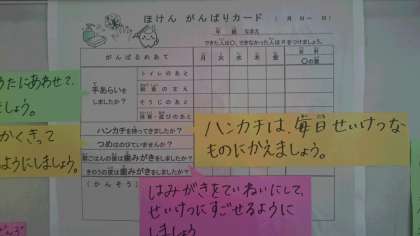 ほけん がんばりカード ( 月 日〜 日)
年 組 なまえ
できた人は○、できなかった人は×をつけましょう。
がんばるめあて 月 火 水 木 金
○の数
手あらいを
しましたか?
トイレのあと
給食のまえ
そうじのあと
ハンカチを持ってきましたか?
つめはのびていませんか?
朝ごはんの後は歯みがきをしましたか?
きのうの夜は歯みがきをしましたか?
(かんそう
うたにあわせて、
ましょう。
かくきって
ようにしましょう。
ハンカチは、毎日せいけつな
ものにかえましょう。
はみがきをていねいにして、
せいけつにすごせるように
しましょう